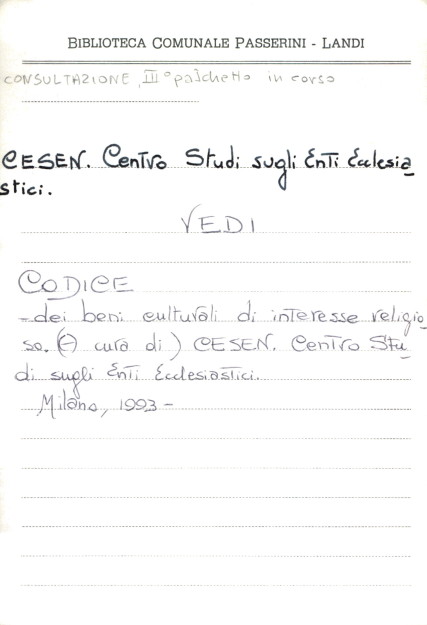 BIBLIOTECA COMUNALE PASSERINI - LANDI
CONSULTAZIONE, III° palchetto in corso
CESEN. Centro Studi sugli Enti Ecclesia
stici.
VEDI
CODICE
- dei beni culturali di interesse religio
so. (A cura di) CESEN. Centro Stu
di sugli Enti Ecclesiastici.
Milano, 1993 -